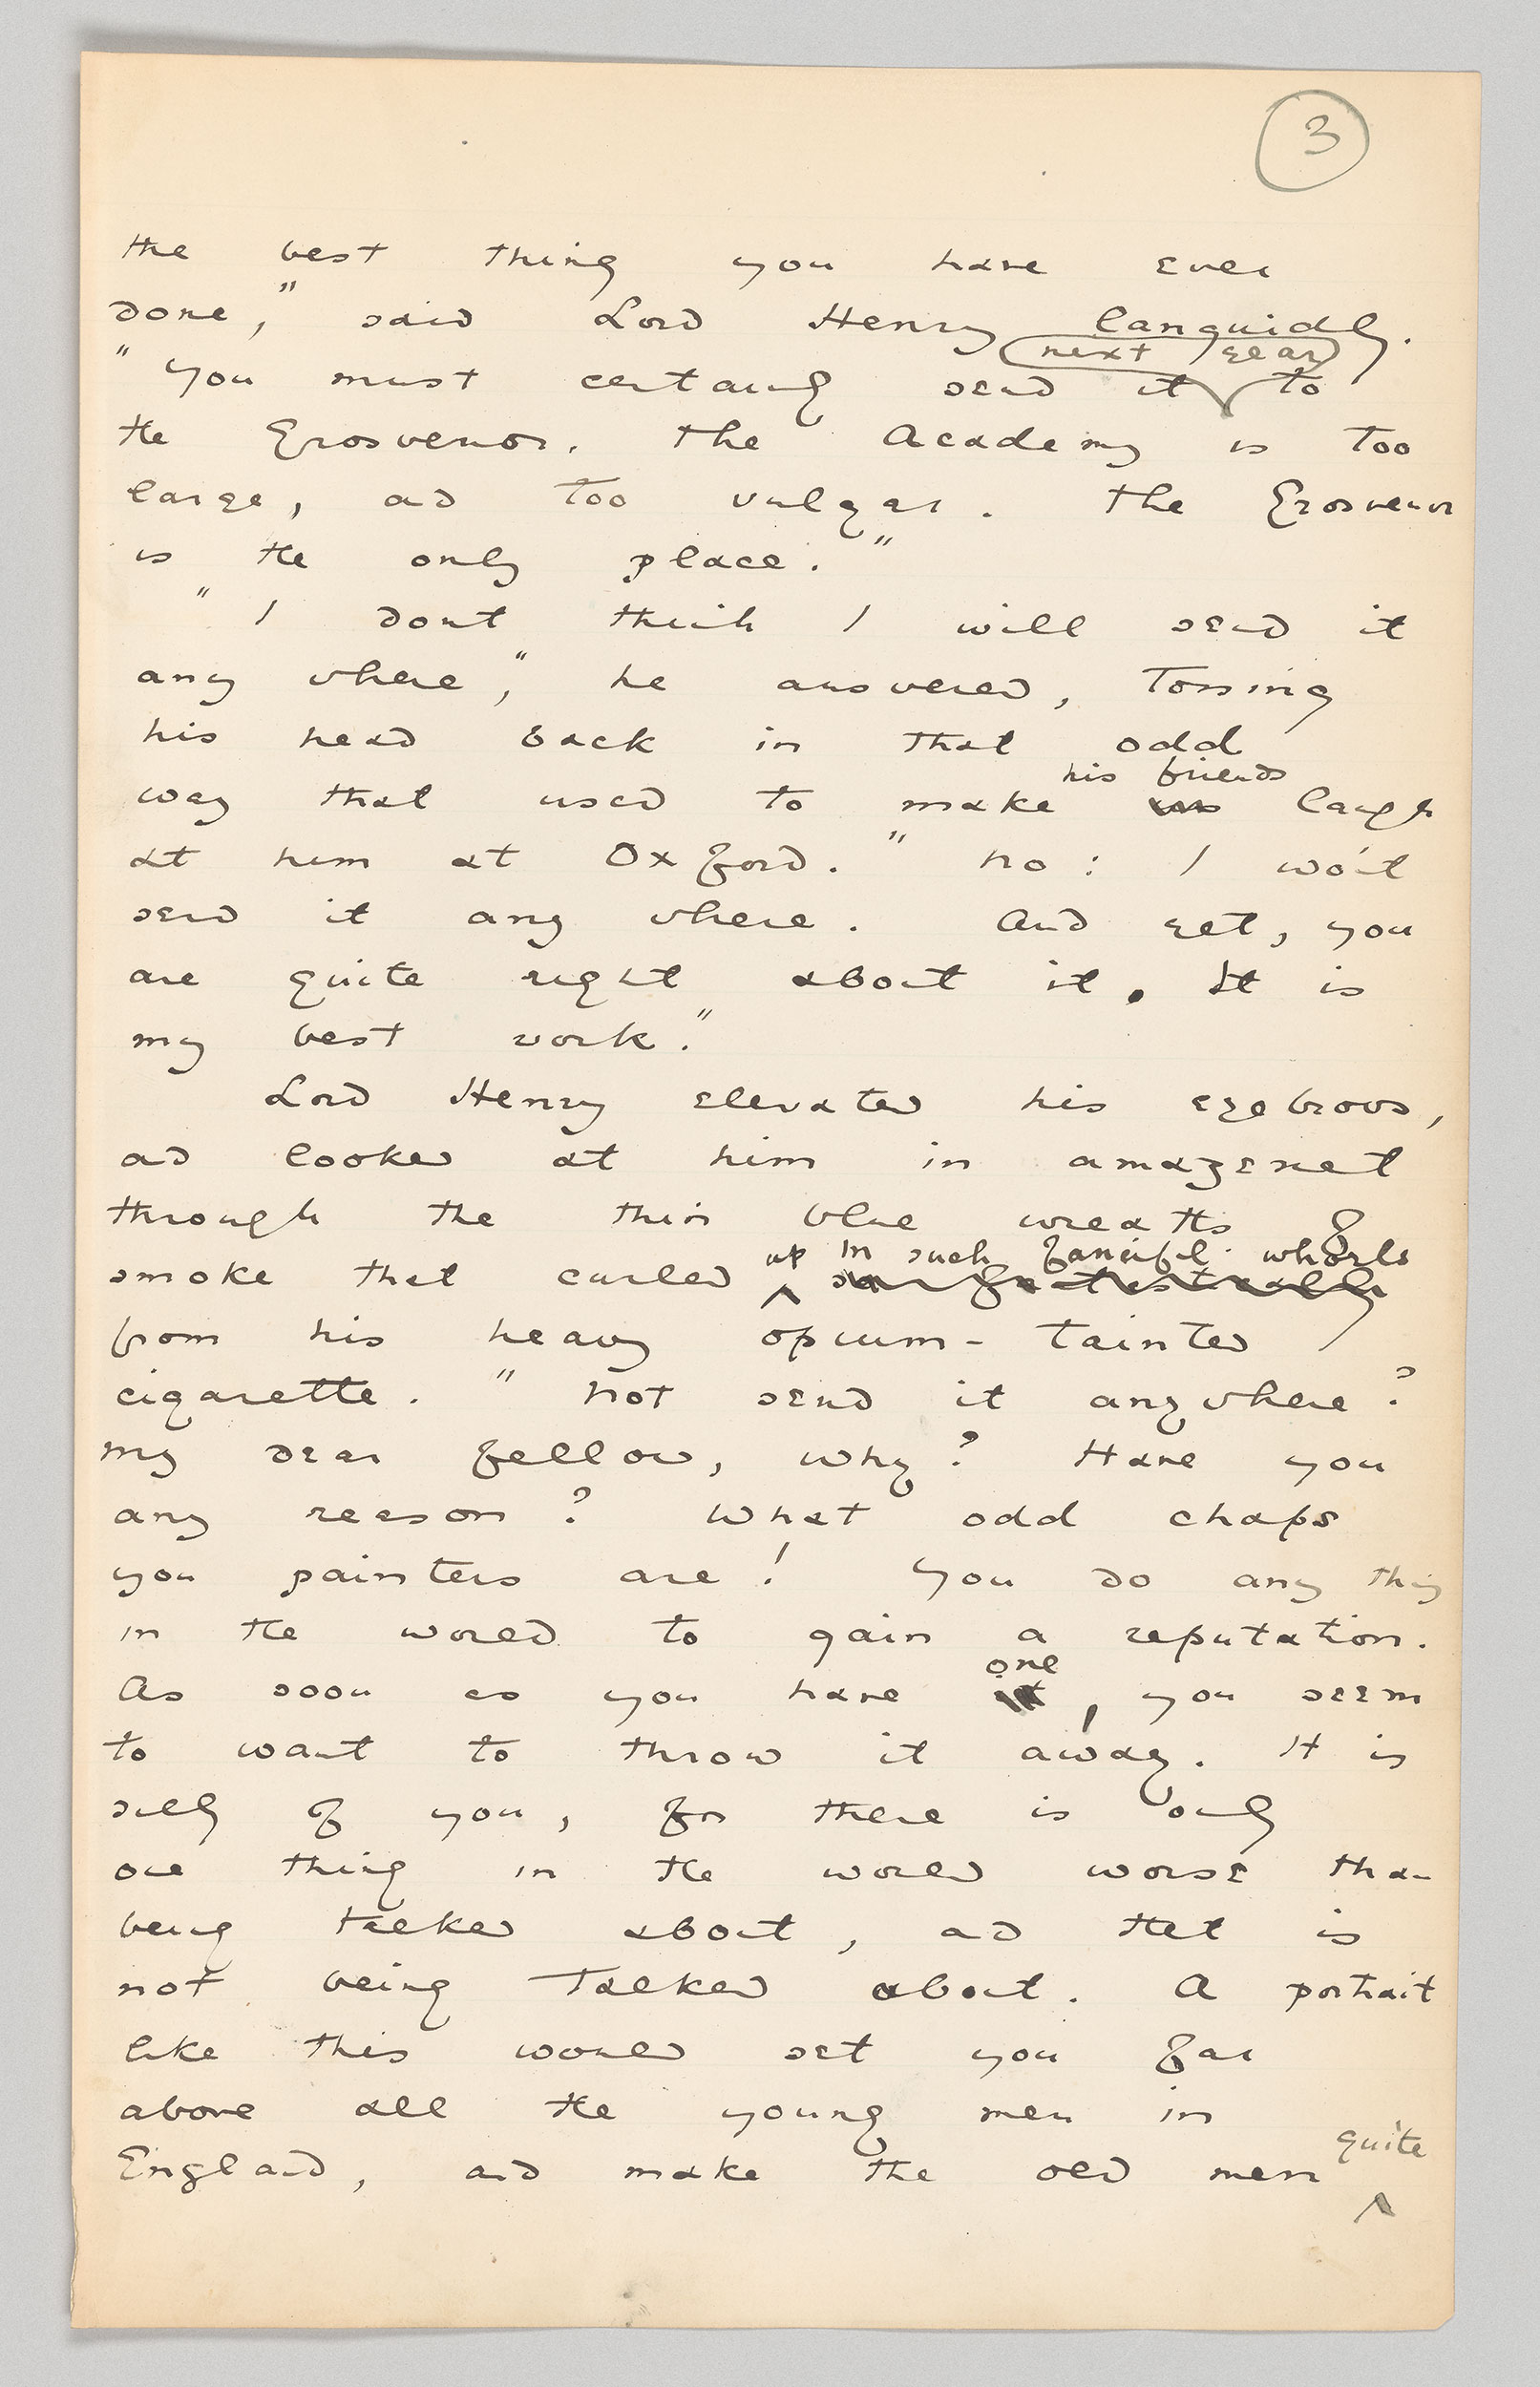 3
the best thing you have ever
done," said Lord Henry languidly.
next year
"You must certainly send it to
the Grosvenor. The Academy is too
large, and too vulgar. The Grosvenor
is the only place."
"I dont think I will send it
any where," he answered, tossing
his head back in that odd
his friends
way that used to make us laugh
at him at Oxford. "No: I won't
send it any where. And yet, you
are quite right about it. It is
my best work."
Lord Henry elevated his eyebrows,
and looked at him in amazement
through the thin blue wreaths of
up in such fanciful whorls
smoke that curled so fantastically
from his heavy opium-tainted
cigarette. "Not send it anywhere?
My dear fellow, why? Have you
any reason? What odd chaps
you painters are! You do any thing
in the world to gain a reputation.
one
As soon as you have it, you seem
to want to throw it away. It is
silly of you, for there is only
one thing in the world worse than
being talked about, and that is
not being talked about. A portrait
like this would set you far
above all the young men in
quite
England, and make the old men